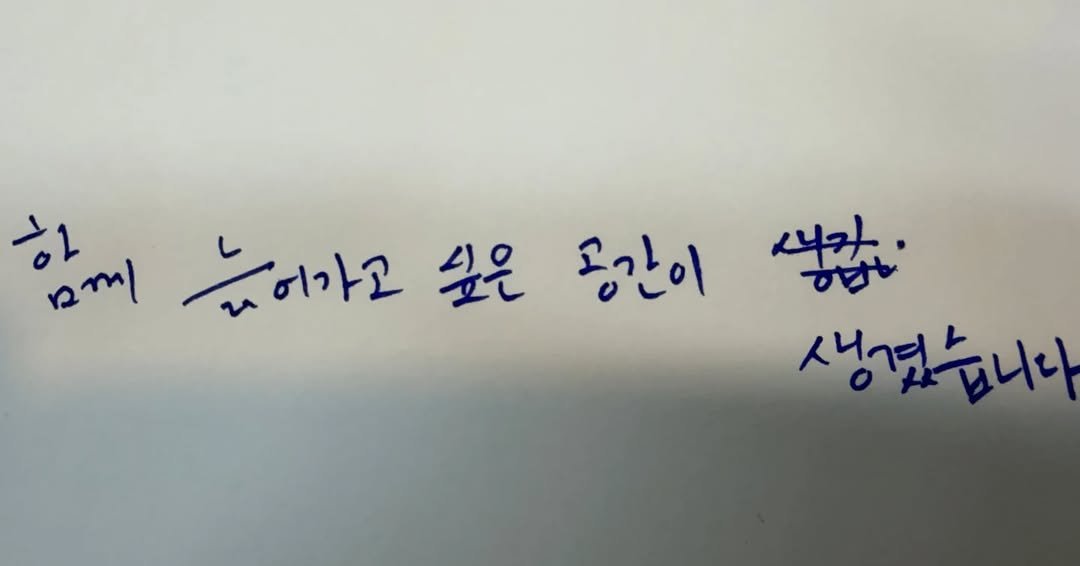 함께 늙어가고 싶은 공간이
생겼습니다